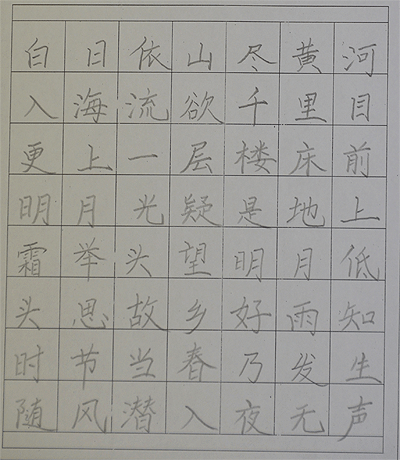 白日依山尽黄河
入海流欲千里目
更上一层楼床前
明月光疑是地上
霜举头望明月低
头思故乡好雨知
时节当春乃发生
随风潜入夜无声